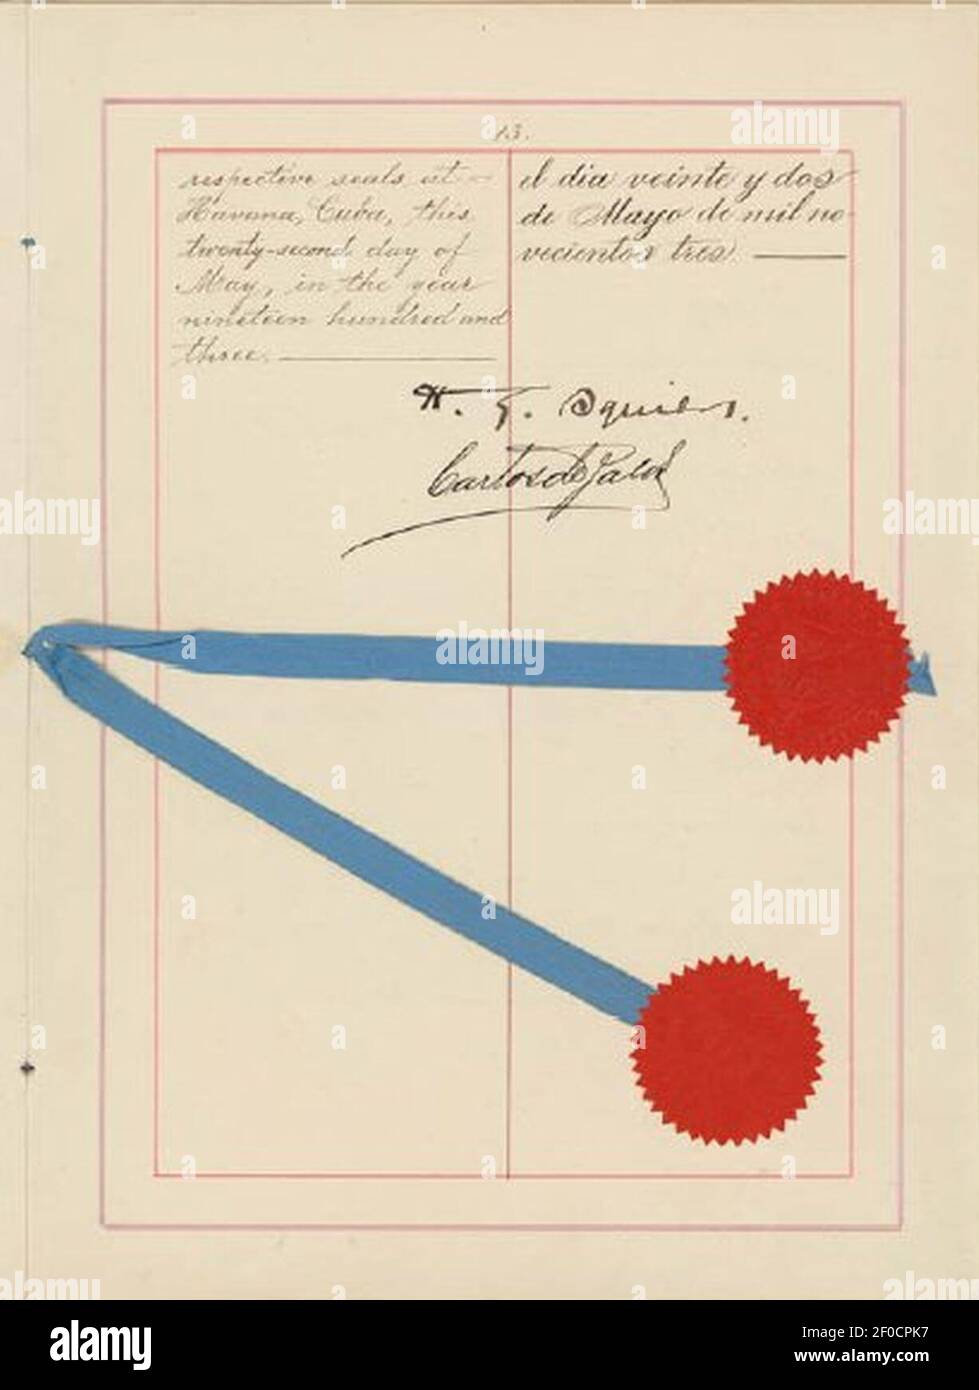 13.
respective seals at
Havana, Cuba, this
twenty-second day of
May, in the year
nineteen hundred and
three.
el dia veinte y dos
de Mayo de mil no-
vecientos tres.
H. G. Squiers.
Carlos de Zaldo
alamy
Image ID: 2F0CPK7
www.alamy.com